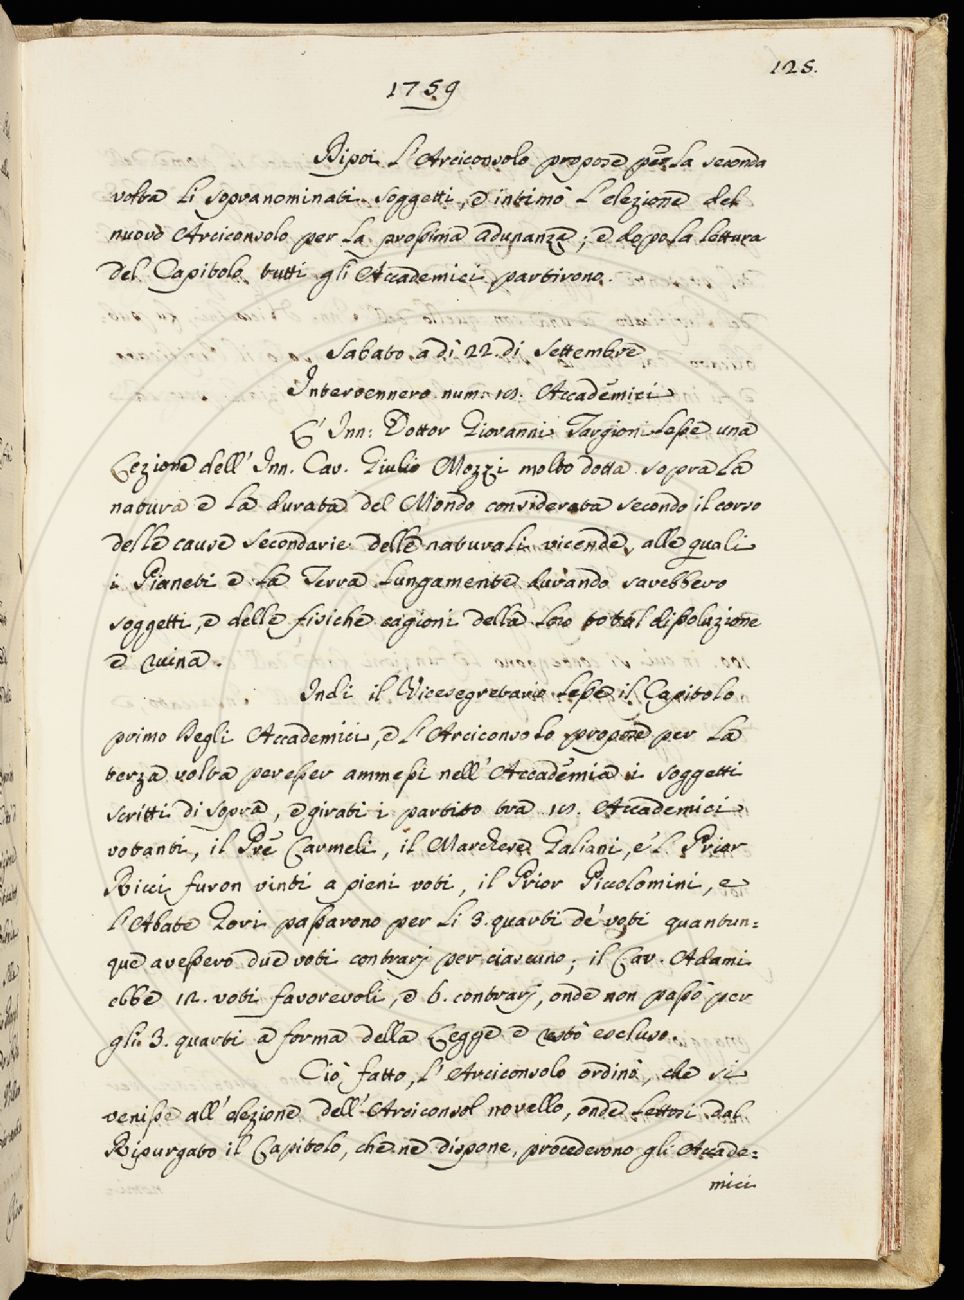 125.
1759
Dipoi l'Arciconsolo propose per la seconda
volta li sopranominati soggetti, e intimò l'elezione del
nuovo Arciconsolo per la prossima adunanza; e dopo la lettura
del Capitolo tutti gli Accademici partirono.
Sabato adì 22. di Settembre
Intervennero num. 19. Accademici
L'Inn: Dottor Giovanni Targioni lesse una
Lezione dell'Inn. Cav. Giulio Mozzi molto dotta sopra la
natura e la durata del Mondo considerata secondo il corso
delle cause secondarie delle naturali vicende, alle quali
i Pianeti e la Terra lungamente durando sarebbero
soggetti, e delle fisiche cagioni della loro total dissoluzione
e ruina.
Indi il Vicesegretario lesse il Capitolo
primo degli Accademici, e l'Arciconsolo propose per la
terza volta per esser ammessi nell'Accademia i soggetti
scritti di sopra, e girati i partito tra 19. Accademici
votanti, il Pre Carmeli, il Marchese Galiani, e'l Prior
Ricci furon vinti a pieni voti, il Prior Piccolomini, e
l'Abate Gori passarono per li 3. quarti de' voti quantun=
que avessero due voti contrarj per ciascuno; il Cav. Adami
ebbe 12. voti favorevoli, e 6. contrarj, onde non passò per
gli 3. quarti a forma della Legge e restò escluso.
Ciò fatto, l'Arciconsolo ordinò, che si
venisse all'elezione dell'Arciconsol novello, onde lettosi dal
Ripurgato il Capitolo, che ne dispone, procederono gli Accade=
mici